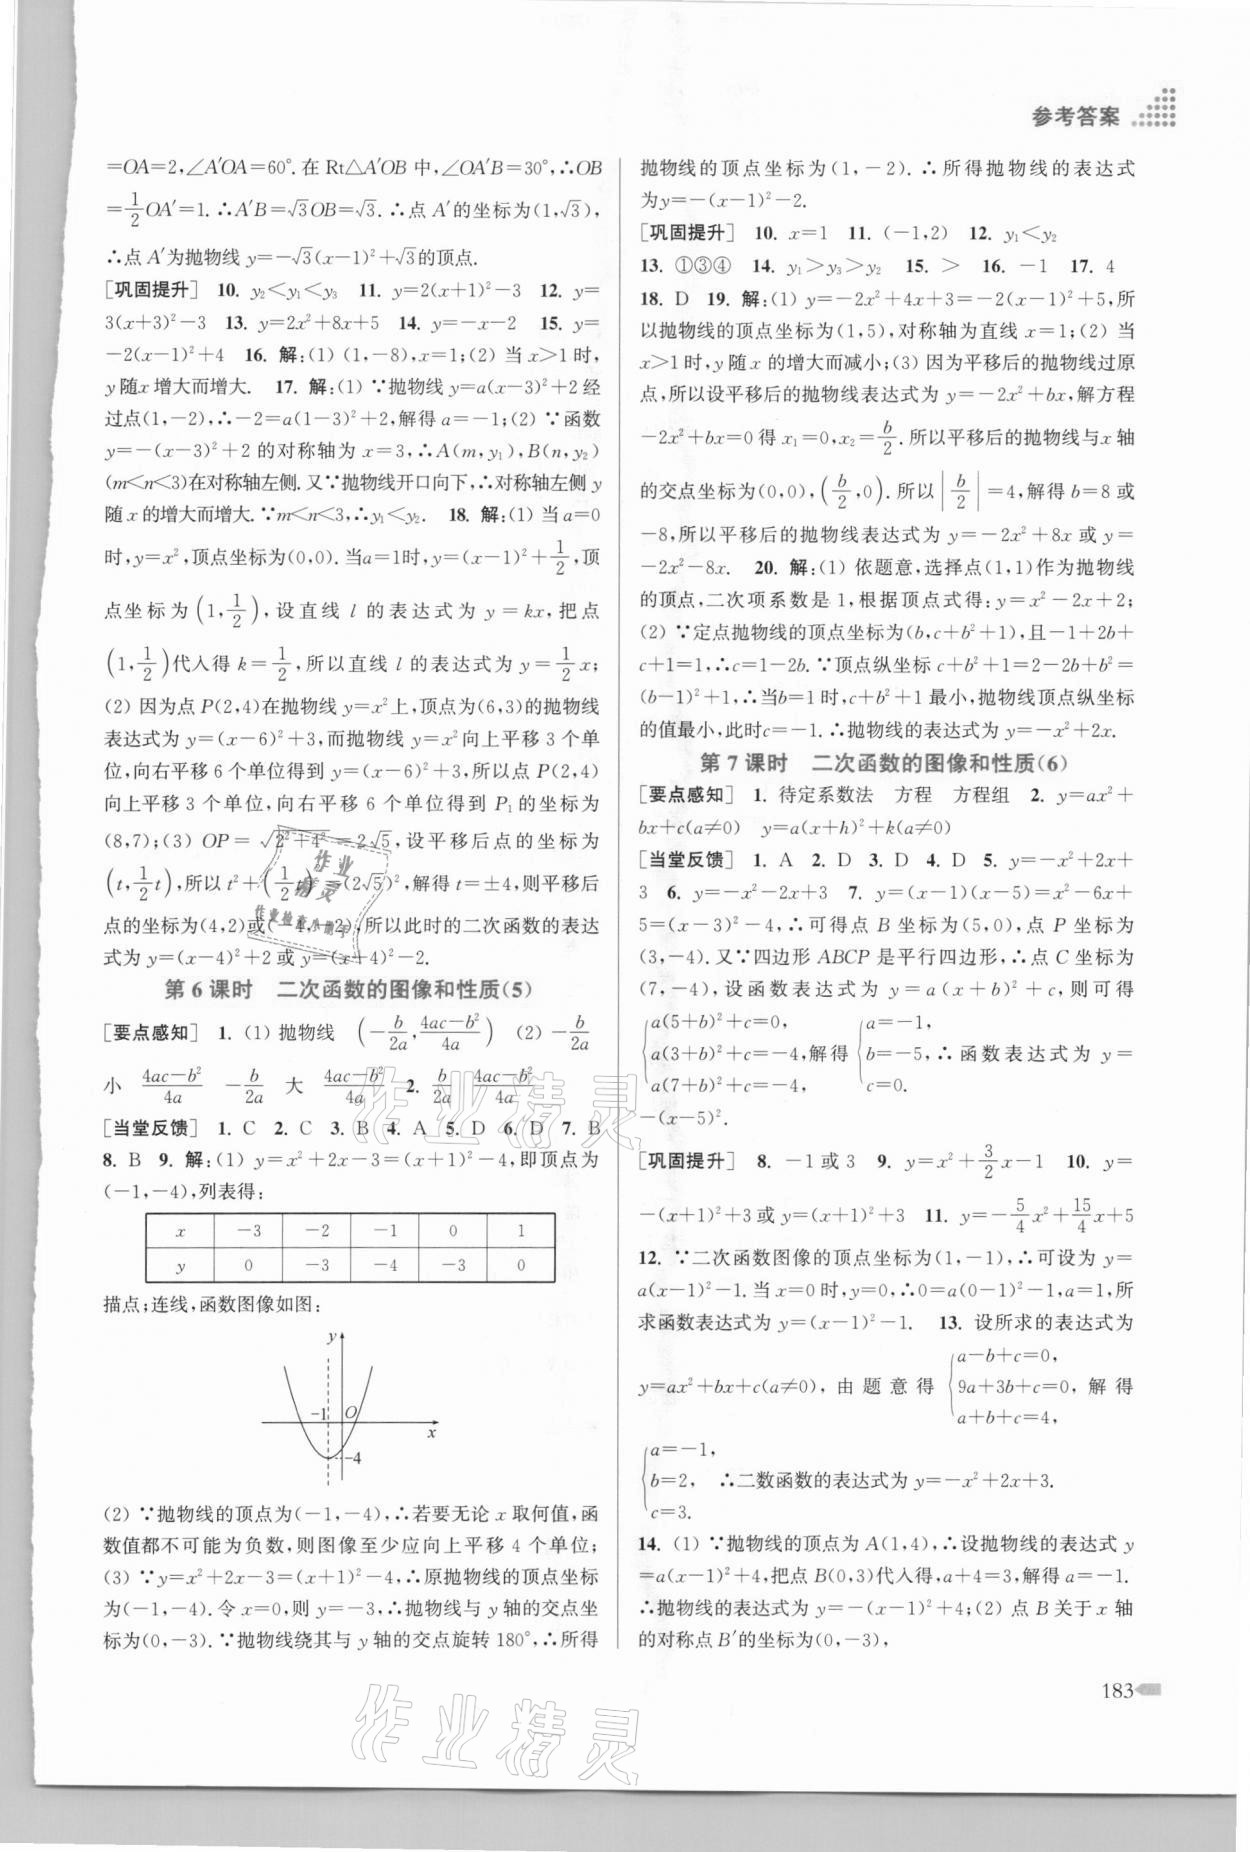 参考答案
=OA=2,∠A′OA=60°.在 Rt△A′OB 中,∠OA′B=30°,∴OB
=1/2OA′=1.∴A′B=√3OB=√3.∴点 A′的坐标为(1,√3),
∴点 A′为抛物线 y=-√3(x-1)²+√3的顶点.
[巩固提升] 10. y₂<y₁<y₃ 11. y=2(x+1)²-3 12. y=
3(x+3)²-3 13. y=2x²+8x+5 14. y=-x-2 15. y=
-2(x-1)²+4 16. 解:(1) (1,-8),x=1;(2) 当 x>1 时,
y 随x 增大而增大. 17. 解:(1) ∵抛物线 y=a(x-3)²+2 经
过点(1,-2),∴-2=a(1-3)²+2,解得 a=-1;(2) ∵函数
y=-(x-3)²+2 的对称轴为 x=3,∴A(m,y₁),B(n,y₂)
(m<n<3)在对称轴左侧.又∵抛物线开口向下,∴对称轴左侧 y
随 x 的增大而增大.∵m<n<3,∴y₁<y₂. 18. 解:(1) 当 a=0
时,y=x²,顶点坐标为(0,0).当a=1时,y=(x-1)²+1/2,顶
点坐标为(1,1/2),设直线 l 的表达式为 y=kx,把点
(1,1/2)代入得 k=1/2,所以直线 l 的表达式为 y=1/2x;
(2) 因为点 P(2,4)在抛物线 y=x²上,顶点为(6,3)的抛物线
表达式为 y=(x-6)²+3,而抛物线 y=x²向上平移 3 个单
位,向右平移 6 个单位得到 y=(x-6)²+3,所以点 P(2,4)
向上平移 3 个单位,向右平移 6 个单位得到 P₁的坐标为
(8,7);(3) OP=√2²+4²=2√5,设平移后点的坐标为
(t,1/2t),所以 t²+(1/2t)²=(2√5)²,解得 t=±4,则平移后
点的坐标为(4,2)或(-4,-2),所以此时的二次函数的表达
式为 y=(x-4)²+2 或 y=(x+4)²-2.
第 6 课时 二次函数的图像和性质(5)
[要点感知] 1. (1) 抛物线 (-b/2a,4ac-b²/4a) (2) -b/2a
小 4ac-b²/4a -b/2a 大 4ac-b²/4a 2. b/2a 4ac-b²/4a
[当堂反馈] 1. C 2. C 3. B 4. A 5. D 6. D 7. B
8. B 9. 解:(1) y=x²+2x-3=(x+1)²-4,即顶点为
(-1,-4),列表得:
x -3 -2 -1 0 1
y 0 -3 -4 -3 0
描点;连线,函数图像如图:
y
-1 O
x
-4
(2) ∵抛物线的顶点为(-1,-4),∴若要无论 x 取何值,函
数值都不可能为负数,则图像至少应向上平移 4 个单位;
(3) ∵y=x²+2x-3=(x+1)²-4,∴原抛物线的顶点坐标
为(-1,-4).令 x=0,则 y=-3,∴抛物线与 y 轴的交点坐
标为(0,-3).∵抛物线绕其与 y 轴的交点旋转 180°,∴所得
抛物线的顶点坐标为(1,-2).∴所得抛物线的表达式
为y=-(x-1)²-2.
[巩固提升] 10. x=1 11. (-1,2) 12. y₁<y₂
13. ①③④ 14. y₁>y₃>y₂ 15. > 16. -1 17. 4
18. D 19. 解:(1) y=-2x²+4x+3=-2(x-1)²+5,所
以抛物线的顶点坐标为(1,5),对称轴为直线 x=1;(2) 当
x>1 时,y 随 x 的增大而减小;(3) 因为平移后的抛物线过原
点,所以设平移后的抛物线表达式为 y=-2x²+bx,解方程
-2x²+bx=0 得 x₁=0,x₂=b/2.所以平移后的抛物线与x 轴
的交点坐标为(0,0),(b/2,0).所以|b/2|=4,解得 b=8 或
-8,所以平移后的抛物线表达式为 y=-2x²+8x 或 y=
-2x²-8x. 20. 解:(1) 依题意,选择点(1,1)作为抛物线
的顶点,二次项系数是 1,根据顶点式得:y=x²-2x+2;
(2) ∵定点抛物线的顶点坐标为(b,c+b²+1),且-1+2b+
c+1=1,∴c=1-2b.∵顶点纵坐标 c+b²+1=2-2b+b²=
(b-1)²+1,∴当b=1 时,c+b²+1 最小,抛物线顶点纵坐标
的值最小,此时c=-1.∴抛物线的表达式为 y=-x²+2x.
第 7 课时 二次函数的图像和性质(6)
[要点感知] 1. 待定系数法 方程 方程组 2. y=ax²+
bx+c(a≠0) y=a(x+h)²+k(a≠0)
[当堂反馈] 1. A 2. D 3. D 4. D 5. y=-x²+2x+
3 6. y=-x²-2x+3 7. y=(x-1)(x-5)=x²-6x+
5=(x-3)²-4,∴可得点 B 坐标为(5,0),点 P 坐标为
(3,-4).又∵四边形 ABCP 是平行四边形,∴点 C 坐标为
(7,-4),设函数表达式为 y=a(x+b)²+c,则可得
{a(5+b)²+c=0, {a=-1,
a(3+b)²+c=-4,解得 b=-5,∴函数表达式为 y=
a(7+b)²+c=-4, c=0.
-(x-5)².
[巩固提升] 8. -1或3 9. y=x²+3/2x-1 10. y=
-(x+1)²+3或 y=(x+1)²+3 11. y=-5/4x²+15/4x+5
12. ∵二次函数图像的顶点坐标为(1,-1),∴可设为 y=
a(x-1)²-1.当 x=0 时,y=0,∴0=a(0-1)²-1,a=1,所
求函数表达式为 y=(x-1)²-1. 13. 设所求的表达式为
{a-b+c=0,
y=ax²+bx+c(a≠0),由题意得 9a+3b+c=0,解得
a+b+c=4,
{a=-1,
b=2, ∴二数函数的表达式为 y=-x²+2x+3.
c=3.
14. (1) ∵抛物线的顶点为 A(1,4),∴设抛物线的表达式 y
=a(x-1)²+4,把点 B(0,3)代入得,a+4=3,解得 a=-1.
∴抛物线的表达式为 y=-(x-1)²+4;(2) 点 B 关于 x 轴
的对称点 B′的坐标为(0,-3),
183
作业精灵
作业精灵
作业
精灵
作业检查小助手